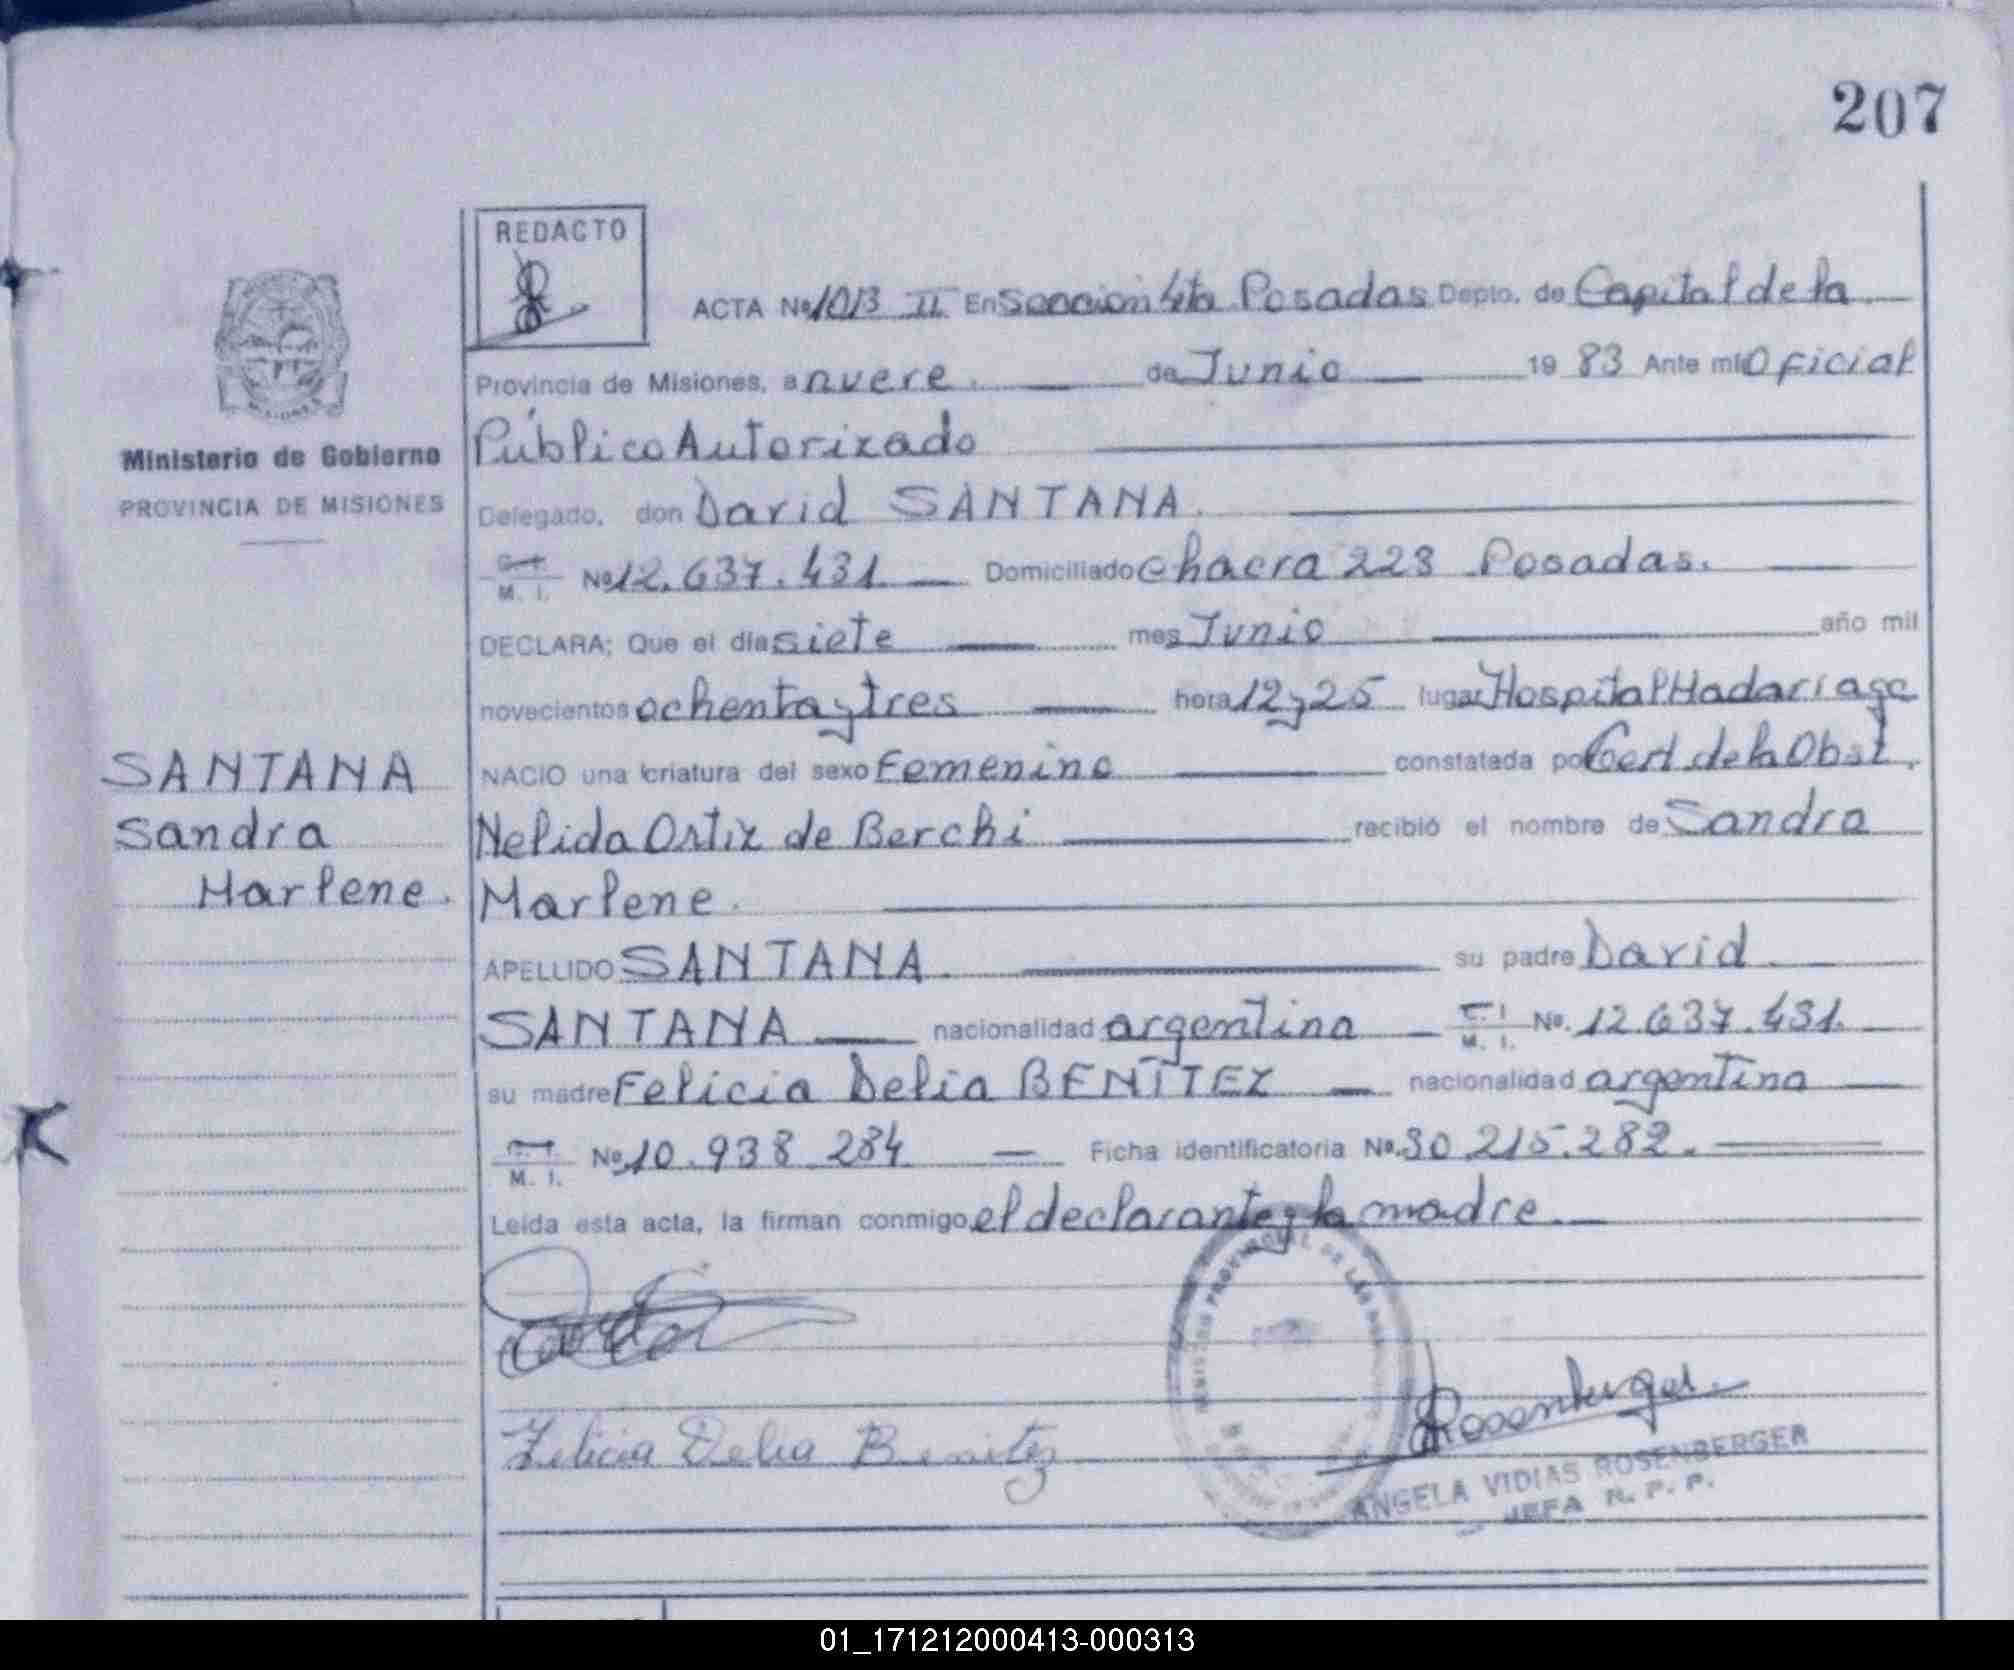 207
REDACTO
ACTA Nº 1013 II En Sección 4ta Posadas Depto. de Capital de la
Provincia de Misiones, a nueve de Junio 19 83 Ante mi Oficial
Ministerio de Gobierno
Público Autorizado
PROVINCIA DE MISIONES
Delegado, don David SANTANA.
M. I. Nº 12.637.431 Domiciliado Chacra 223 Posadas.
DECLARA; Que el día siete mes Junio año mil
novecientos ochenta y tres hora 12 y 25 lugar Hospital Madariaga
SANTANA
NACIO una criatura del sexo Femenino constatada por Cert. de la Obst.
Sandra
Nelida Ortiz de Berchi recibió el nombre de Sandra
Marlene.
Marlene.
APELLIDO SANTANA. su padre David
SANTANA nacionalidad argentina C. I. M. I. Nº. 12.637.431.
su madre Felicia Delia BENITEZ nacionalidad argentina
M. I. Nº 10.938.284 Ficha identificatoria Nº. 30.215.282.
Leida esta acta, la firman conmigo el declarante y la madre.
REGISTRO PROVINCIAL DE LAS
Felicia Delia Benitez
Rosenberger
ANGELA VIDIAS ROSENBERGER
JEFA R. P. P.
01_171212000413-000313